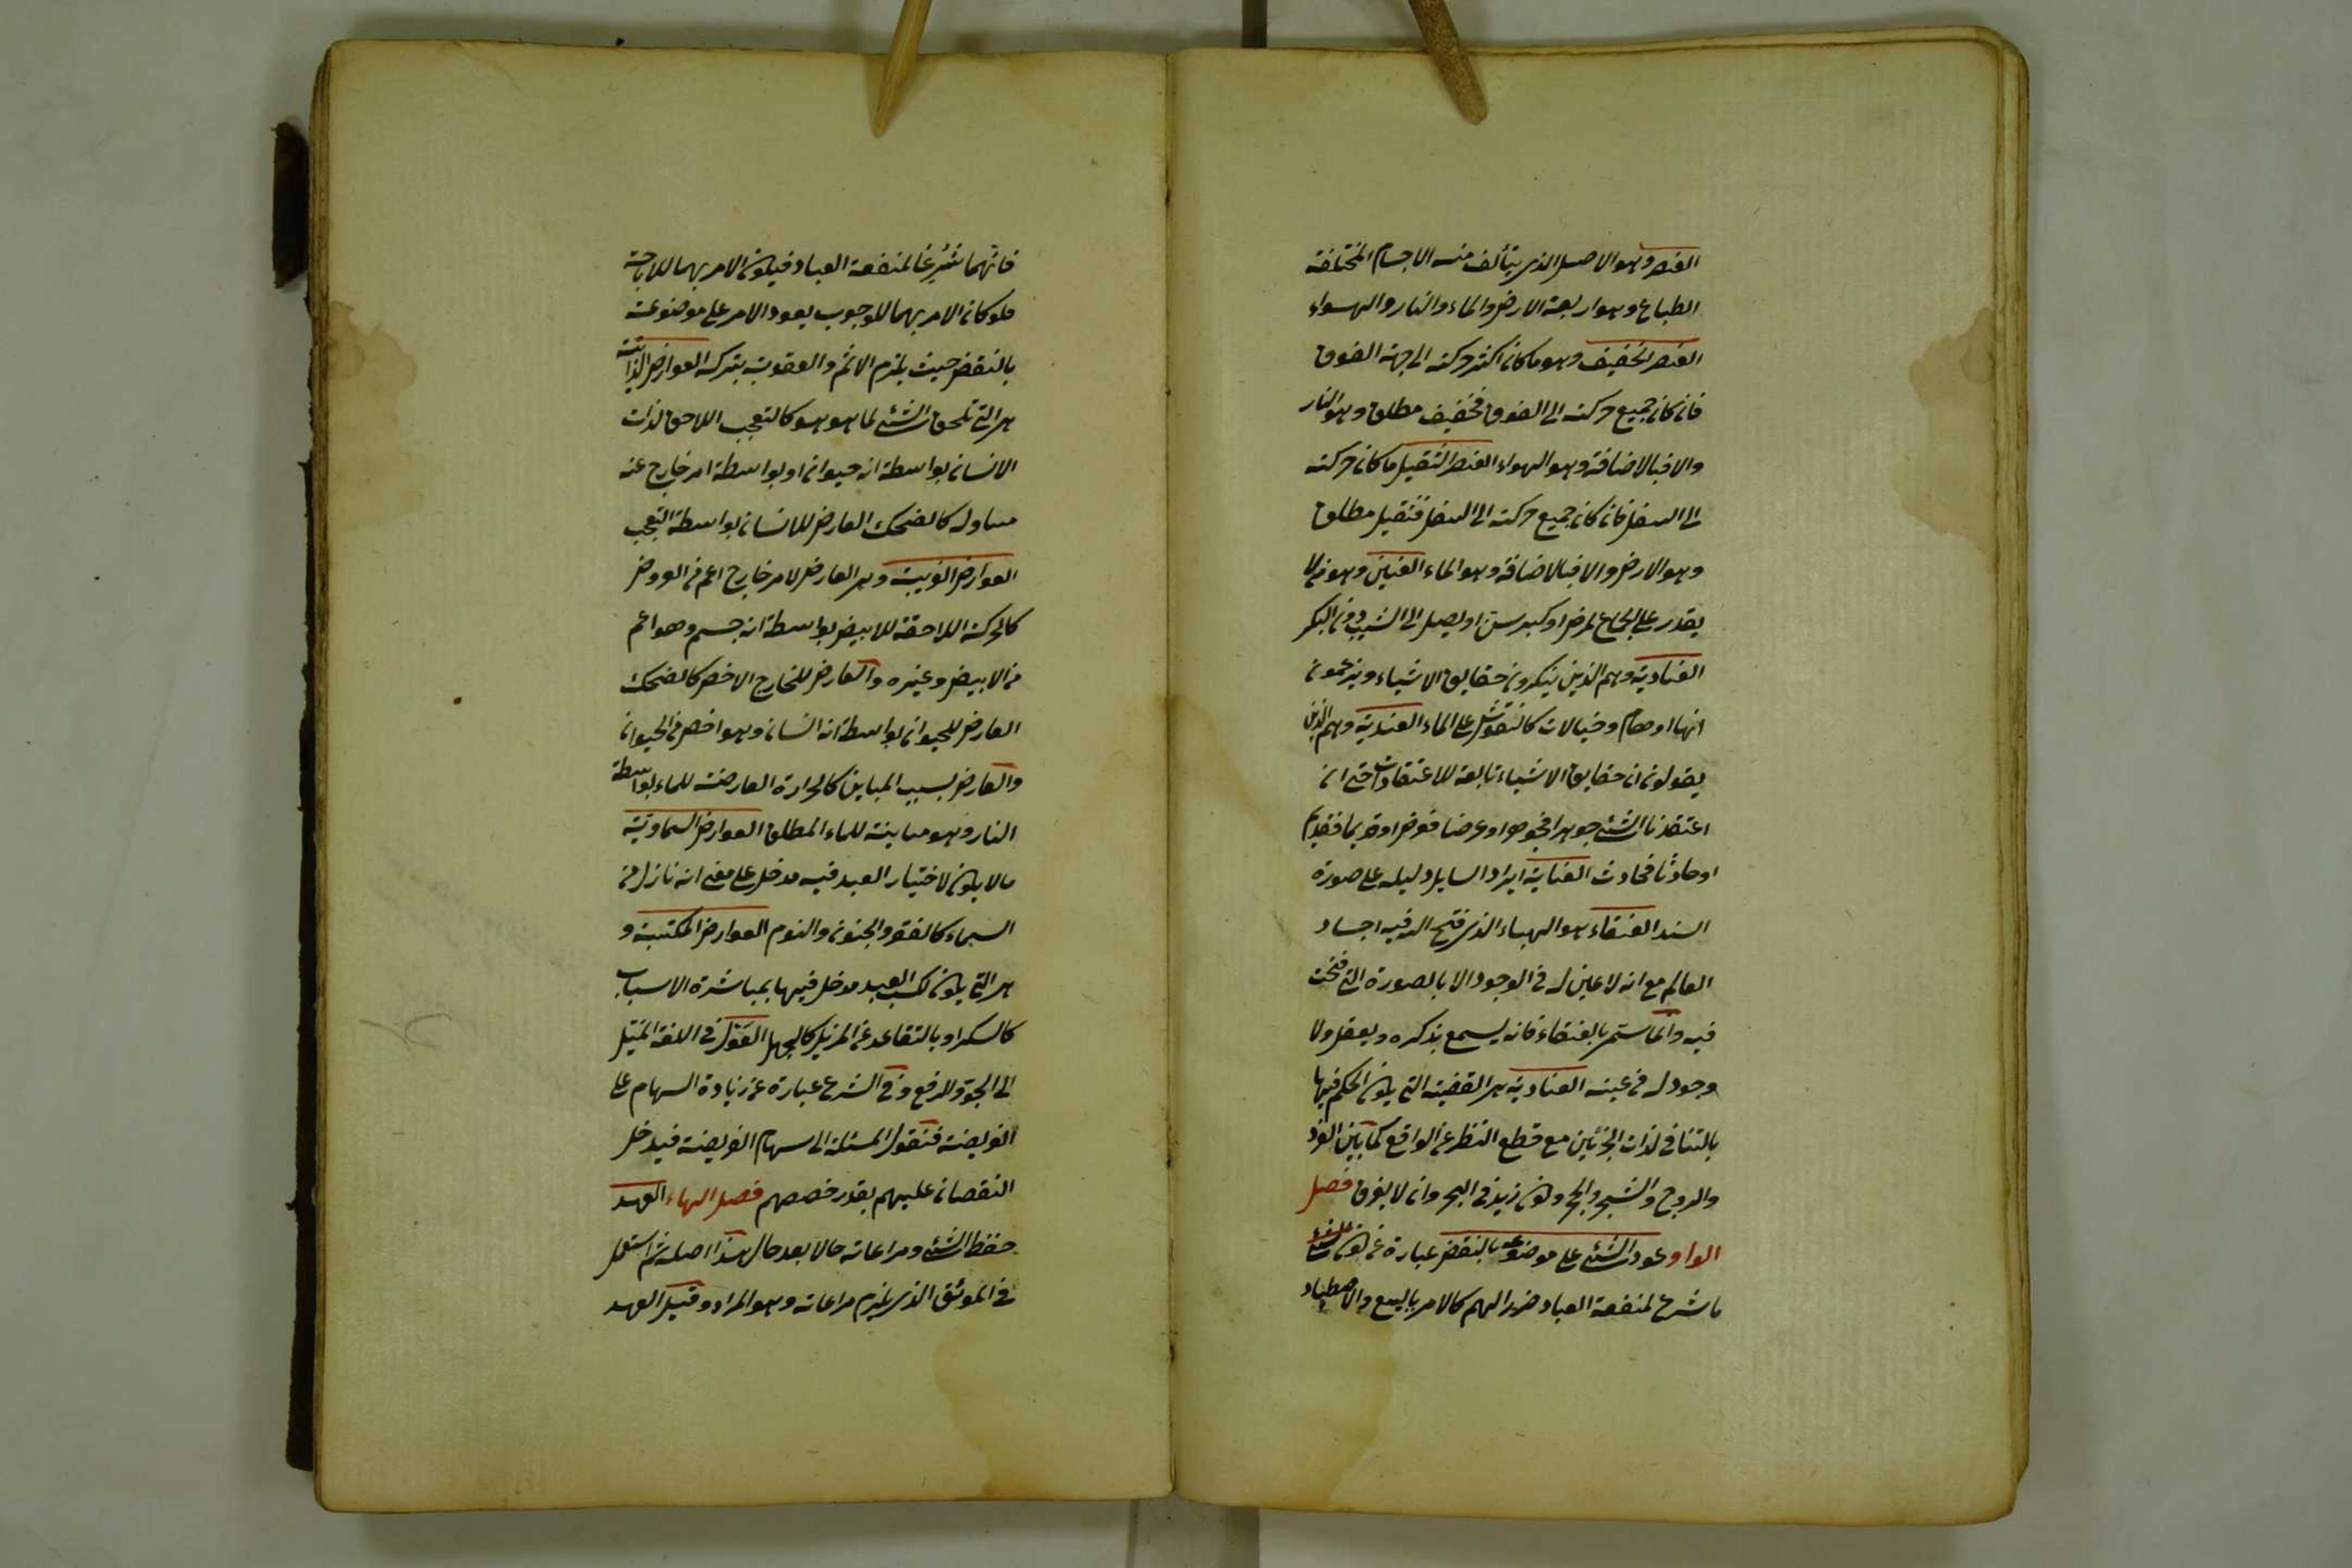 العنصر وهو الاصل الذى يتألف منه الاجسام المختلفة
الطباع وهو اربعة الارض والماء والنار والهواء
العنصر الخفيف وهو ما كان اكثر حركته الى جهة الفوق
فان كان جميع حركته الى الفوق فخفيف مطلق وهو النار
والا فبالاضافة وهو الهواء العنصر الثقيل ما كان حركته
الى السفل فان كان جميع حركته الى السفل فثقيل مطلق
وهو الارض والا فبالاضافة وهو الماء العنين وهو من لا
يقدر على الجماع لمرض او كبر سن او يصل الى الثيب دون البكر
العنادية وهم الذين ينكرون حقايق الاشياء ويزعمون
انها اوهام وخيالات كالنقوش على الماء العندية وهم الذين
يقولون ان حقايق الاشياء تابعة للاعتقادات حتى ان
اعتقدنا الشئ جوهرا فجوهر او عرضا فعرض او قديما فقديم
او حادثا فحادث العناية ايراد السايل دليله على صورة
السند العنقاء هو الهباء الذى فتح الله فيه اجساد
العالم مع انه لا عين له فى الوجود الا بالصورة التى فتحت
فيه وانما سمى بالعنقاء فانه يسمع بذكره ويعقل ولا
وجود له فى عينه العنادية هى القضية التى يكون الحكم فيها
بالتنافى لذات الجزئين مع قطع النظر عن الواقع كما بين الفرد
والزوج والشجر والحجر وكون زيد فى البحر وان لا يغرق فصل
الواو عود الشئ على موضوعه بالنقض عبارة عن كون
ما شرع لمنفعة العباد ضررا لهم كالامر بالبيع والاصطياد
فانهما شرعا لمنفعة العباد فيكون الامر بهما للاباحة
فلو كان الامر بهما للوجوب يعود الامر على موضوعه
بالنقض حيث يلزم الاثم والعقوبة بتركه العوارض الذاتية
هى التى تلحق الشئ لما هو هو كالتعجب اللاحق لذات
الانسان بواسطة انه حيوان او بواسطة امر خارج عنه
مساو له كالضحك العارض للانسان بواسطة التعجب
العوارض الغريبة وهى العارض لامر خارج اعم من المعروض
كالحركة اللاحقة للابيض بواسطة انه جسم وهو اعم
من الابيض وغيره والعارض للخارج الاخص كالضحك
العارض للحيوان بواسطة انه انسان وهو اخص من الحيوان
والعارض بسبب المباين كالحرارة العارضة للماء بواسطة
النار وهو مباينة للماء المطلق العوارض السماوية
ما لا يكون لاختيار العبد فيه مدخل على معنى انه نازل من
السماء كالصغر والجنون والنوم العوارض المكتسبة و
هى التى يكون لكسب العبد مدخل فيها بمباشرة الاسباب
كالسكر او بالتقاعد عن المزيل كالجهل العول فى اللغة الميل
الى الجور والرفع وفى الشرع عبارة عن زيادة السهام على
الفريضة فتعول المسئلة الى سهام الفريضة فيدخل
النقصان عليهم بقدر حصصهم فصل الهاء العهد
حفظ الشئ ومراعاته حالا بعد حال هذا اصله ثم استعمل
فى الموثق الذى يلزم مراعاته وهو المراد وقيل العهد